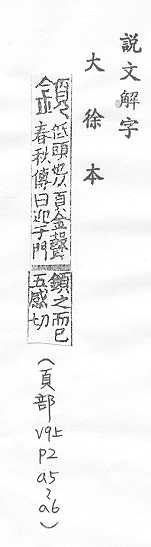 說文解字
大徐本
顉 低頭也从頁金聲
春秋傳曰迎于門
顉之而已
五感切
(頁部
V9上
P2
a5
~
a6
)